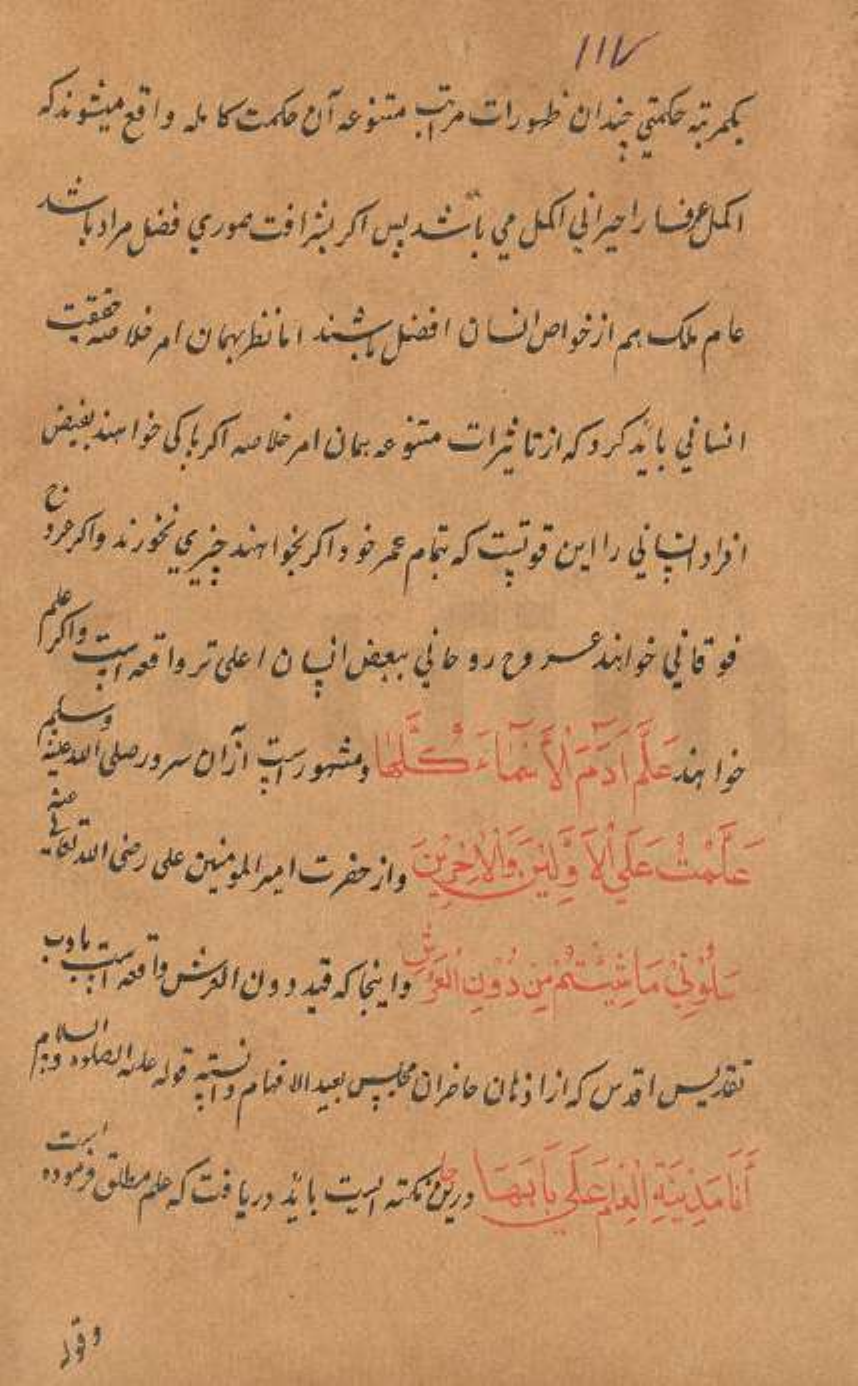 ۱۱۷
بیکمرتبه حکمتی چندان ظهورات مراتب متنوعه آن حکمت کامله واقع میشوند که
اکمل عرفا را حیرانی اکمل می باشد پس اکر بشرافت صوری فضل مراد باشد
عام ملک هم از خواص انسان افضل باشند اما نظر بهمان امر خلاصه حقیقت
انسانی باید کرد که از تاثیرات متنوعه همان امر خلاصه اکر پاکی خواهند بعض
افراد انسانی را این قوتیست که تمام عمر خود اکر بخواهند چیزی نخورند و اکر عروج
فوقانی خواهند عروح روحانی ببعض انسان اعلی تر واقعه است و اکر علم
خواهند عَلَّمَ اٰدَمَ الْأَسْمَاءَ كُلَّهَا و مشهور است از آن سرور صلی الله علیه وسلم
عَلَّمْتُ عَلَی الْاَوَّلِیْنَ وَالْاٰخِرِیْنَ و از حضرت امیر المومنین علی رضی الله تعالی عنه
سَلُوْنِیْ مَا شِئْتُمْ مِنْ دُوْنِ الْعَرْشِ و اینجا که قید دون العرش واقعه است بادب
تقدیس اقدس که از اذهان حاضران مجلس بعید الافهام دانسته قوله علیه الصلوه والسلام
أَنَا مَدِیْنَةِ الْعِلْمِ عَلَی بَابُهَا درین نکته ایست باید دریافت که علم مطلق فرموده است
وقوله